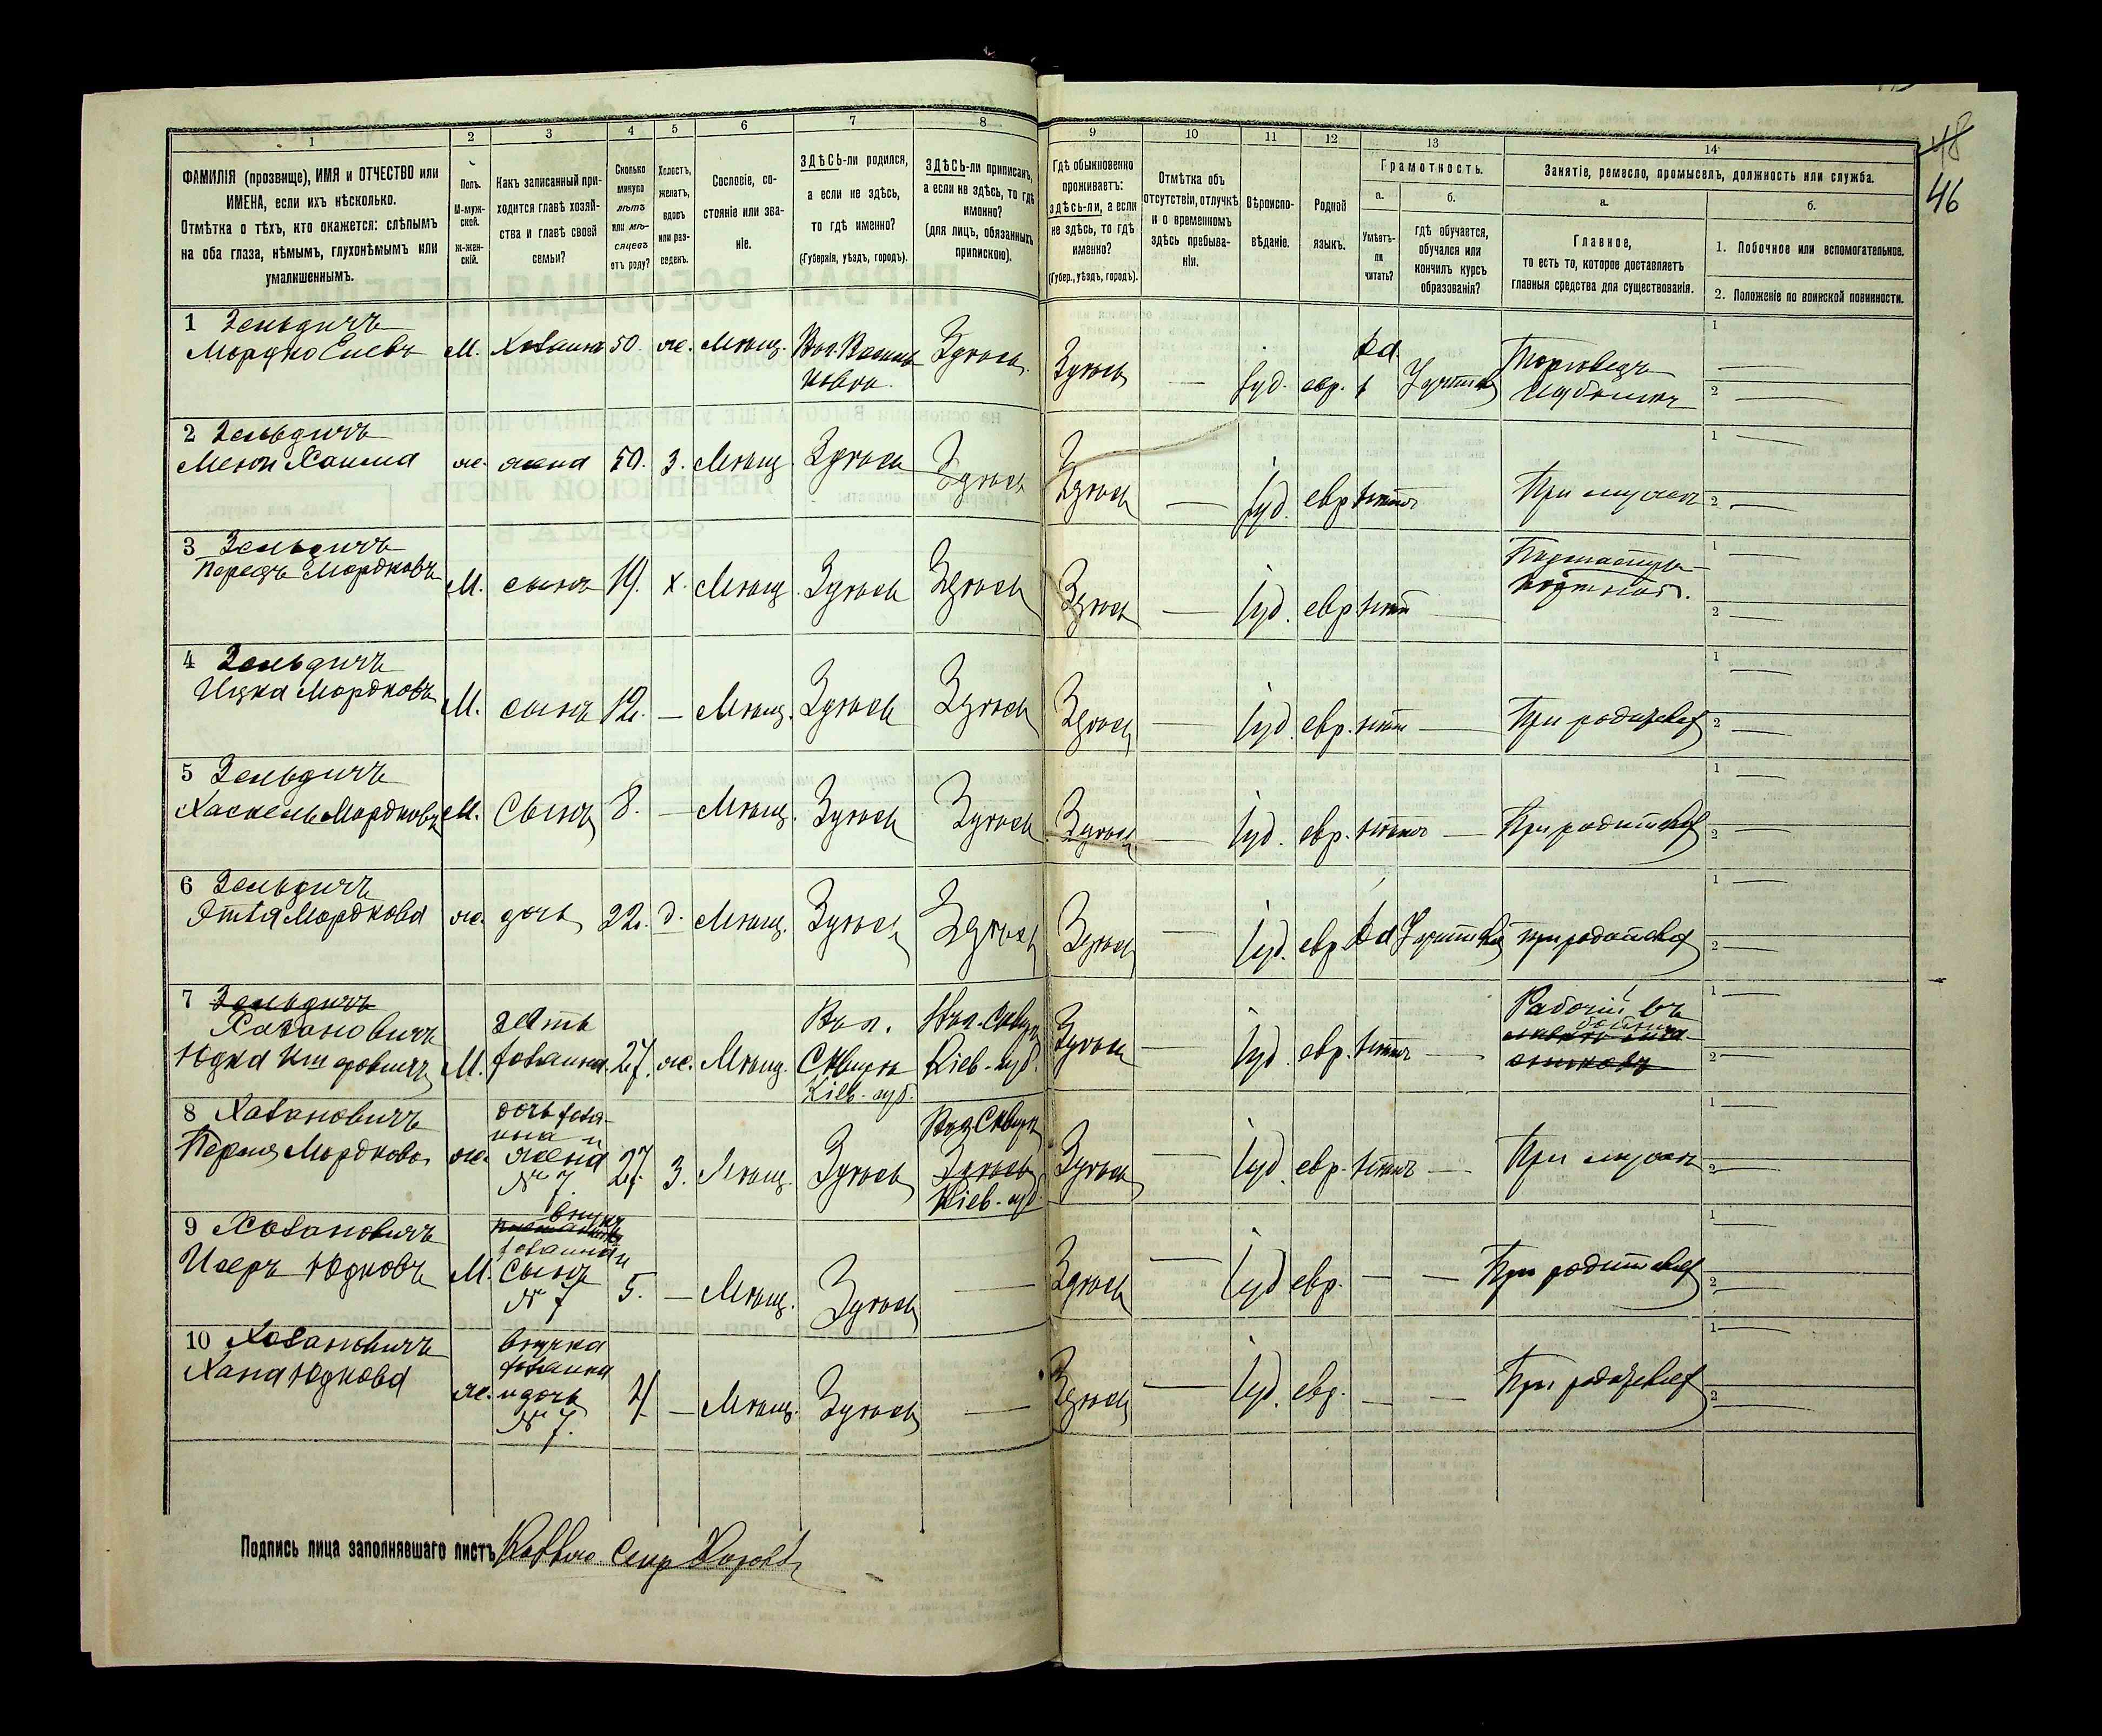 48
46
1
2
3
4
5
6
7
8
9
10
11
12
13
14
ФАМИЛІЯ (прозвище), ИМЯ и ОТЧЕСТВО или
ИМЕНА, если ихъ нѣсколько.
Отмѣтка о тѣхъ, кто окажется: слѣпымъ
на оба глаза, нѣмымъ, глухонѣмымъ или
умалишеннымъ.
Полъ.
М-муж-
ской.
Ж-жен-
скій.
Какъ записанный при-
ходится главѣ хозяй-
ства и главѣ своей
семьи?
Сколько
минуло
лѣтъ
или мѣ-
сяцевъ
отъ роду?
Холостъ,
женатъ,
вдовъ
или раз-
веденъ.
Сословіе, со-
стояніе или зва-
ніе.
ЗДѢСЬ-ли родился,
а если не здѣсь,
то гдѣ именно?
(Губернія, уѣздъ, городъ).
ЗДѢСЬ-ли приписанъ,
а если не здѣсь, то гдѣ
именно?
(для лицъ, обязанныхъ
припискою).
Гдѣ обыкновенно
проживаетъ:
здѣсь-ли, а если
не здѣсь, то гдѣ
именно?
(Губер., уѣздъ, городъ).
Отмѣтка объ
отсутствіи, отлучкѣ
и о временномъ
здѣсь пребыва-
ніи.
Вѣроиспо-
вѣданіе.
Родной
языкъ.
Грамотность.
а.
Умѣетъ-
ли
читать?
б.
гдѣ обучается,
обучался или
кончилъ курсъ
образованія?
Занятіе, ремесло, промыселъ, должность или служба.
а.
Главное,
то есть то, которое доставляетъ
главныя средства для существованія.
б.
1. Побочное или вспомогательное.
2. Положеніе по воинской повинности.
1 Зельдичъ
Мордко Елевъ М. Хозяинъ 50. ж. Мѣщ. Здѣсь. Здѣсь — Іуд. евр. Да Торговецъ
2 Зельдичъ
ж. жена 50. З. Мѣщ. Здѣсь Здѣсь Здѣсь — Іуд. евр нѣтъ При мужѣ
3 Зельдичъ
Перецъ Мордковъ М. сынъ 19. х. Мѣщ. Здѣсь Здѣсь Здѣсь — Іуд. евр нѣтъ
4 Зельдичъ
Ицка Мордковъ М. сынъ 12. — Мѣщ. Здѣсь Здѣсь Здѣсь — Іуд. евр. нѣтъ — При родителяхъ
5 Зельдичъ
Хаскель Мордковъ М. Сынъ 8. — Мѣщ. Здѣсь Здѣсь Здѣсь — Іуд. евр. нѣтъ — При родителяхъ
6 Зельдичъ
Этля Мордкова ж. дочь 22. д. Мѣщ. Здѣсь Здѣсь Здѣсь — Іуд. евр Да при родителяхъ
7 Зельдичъ
Хазановичъ
зять
хозяина. 27. ж. Мѣщ. Сквира Кіев. губ. Кіев. губ. Здѣсь Іуд. евр. нѣтъ — Рабочій въ
8 Хазановичъ
Перля Мордкова ж. дочь хозя-
ина и
жена
№ 7. 27. З. Мѣщ. Здѣсь Здѣсь Кіев. губ. Здѣсь — Іуд. евр. нѣтъ — При мужѣ
9 Хазановичъ
Исеръ Юдковъ М. внукъ
хозяина и
сынъ
№ 7 5. — Мѣщ. Здѣсь — Здѣсь — Іуд евр. — — При родителяхъ
10 Хазановичъ
Хана Юдкова ж. внучка
хозяина
и дочь
№ 7. 4 — Мѣщ. Здѣсь — Здѣсь — Іуд. евр. — — При родителяхъ
Подпись лица заполнявшаго листъ